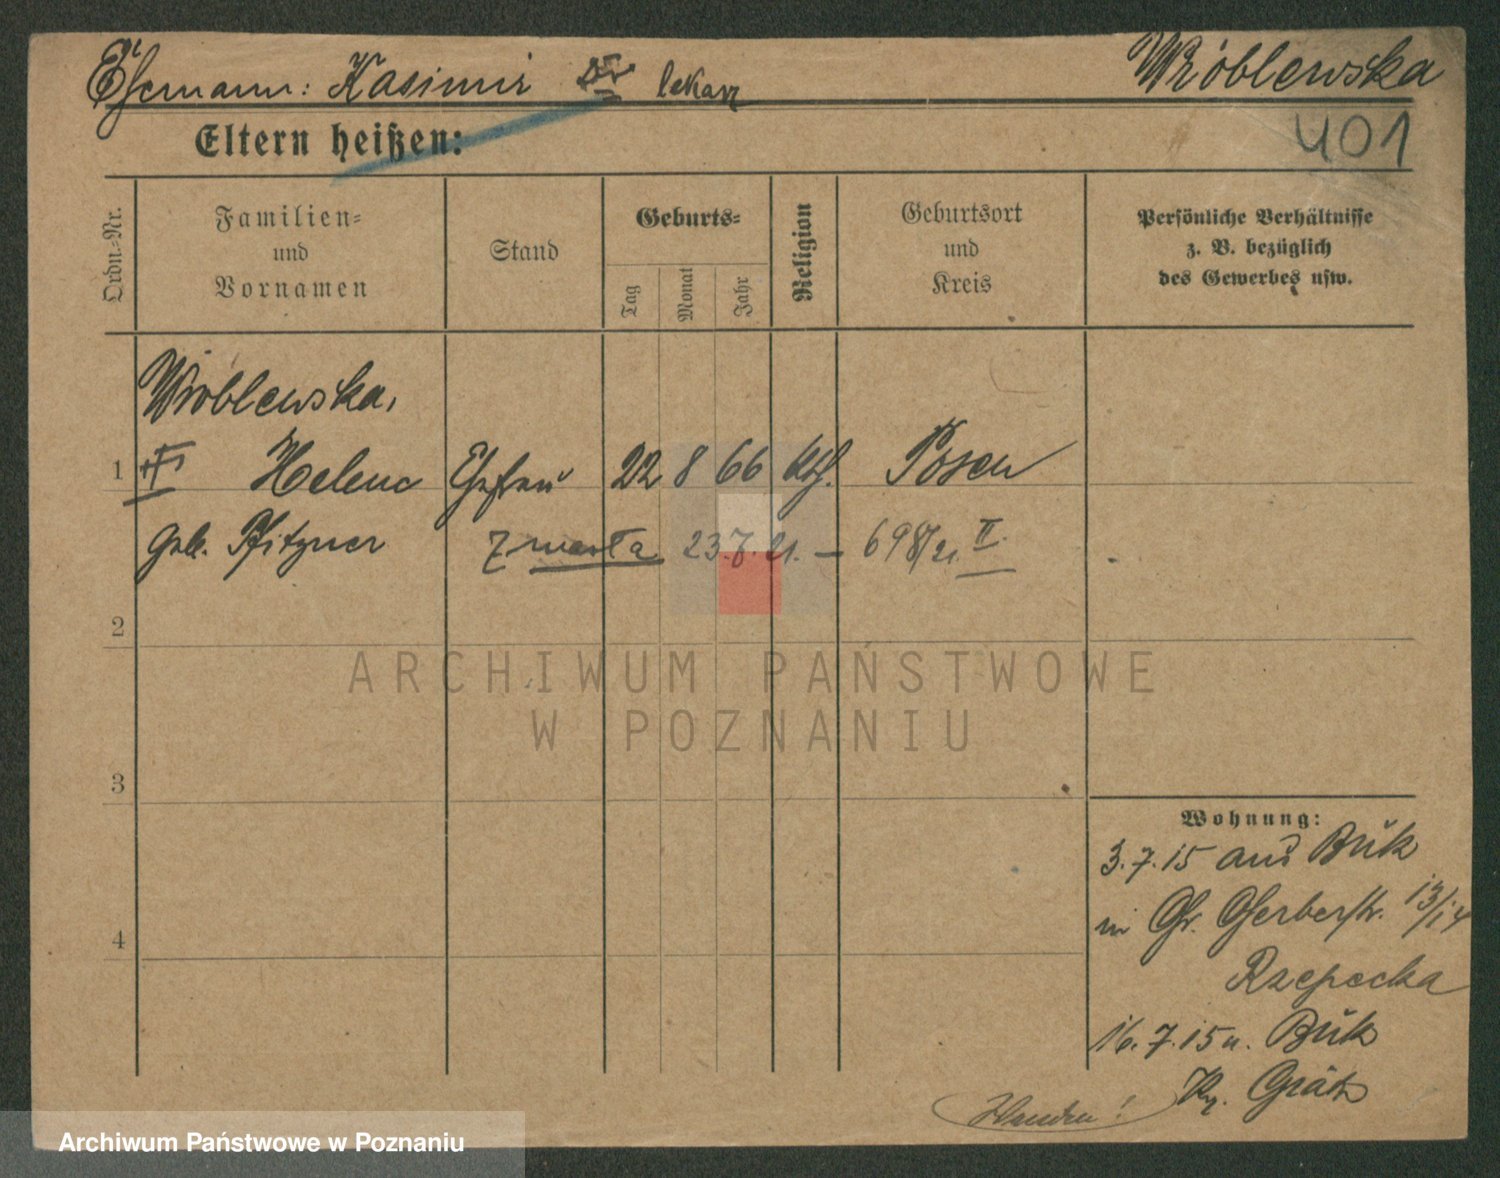 Ehemann: Kasimir Dr lekarz
Wróblewska
401
Eltern heißen:
Ordn.-Nr.
Familien-
und
Vornamen
Stand
Geburts-
Tag
Monat
Jahr
Religion
Geburtsort
und
Kreis
Persönliche Verhältnisse
z. B. bezüglich
des Gewerbes usw.
Wróblewska,
1 Helene Ehefrau 22 8 66 kth. Posen
geb. Pfitzner zmarła 23.7.21. – 698/21 II.
2
3
4
ARCHIWUM PAŃSTWOWE
W POZNANIU
Wohnung:
3.7.15 aus Buk
in Gr. Gerberstr. 13/14
Rzepecka
16.7.15 n. Buk
Kr. Grätz
Archiwum Państwowe w Poznaniu